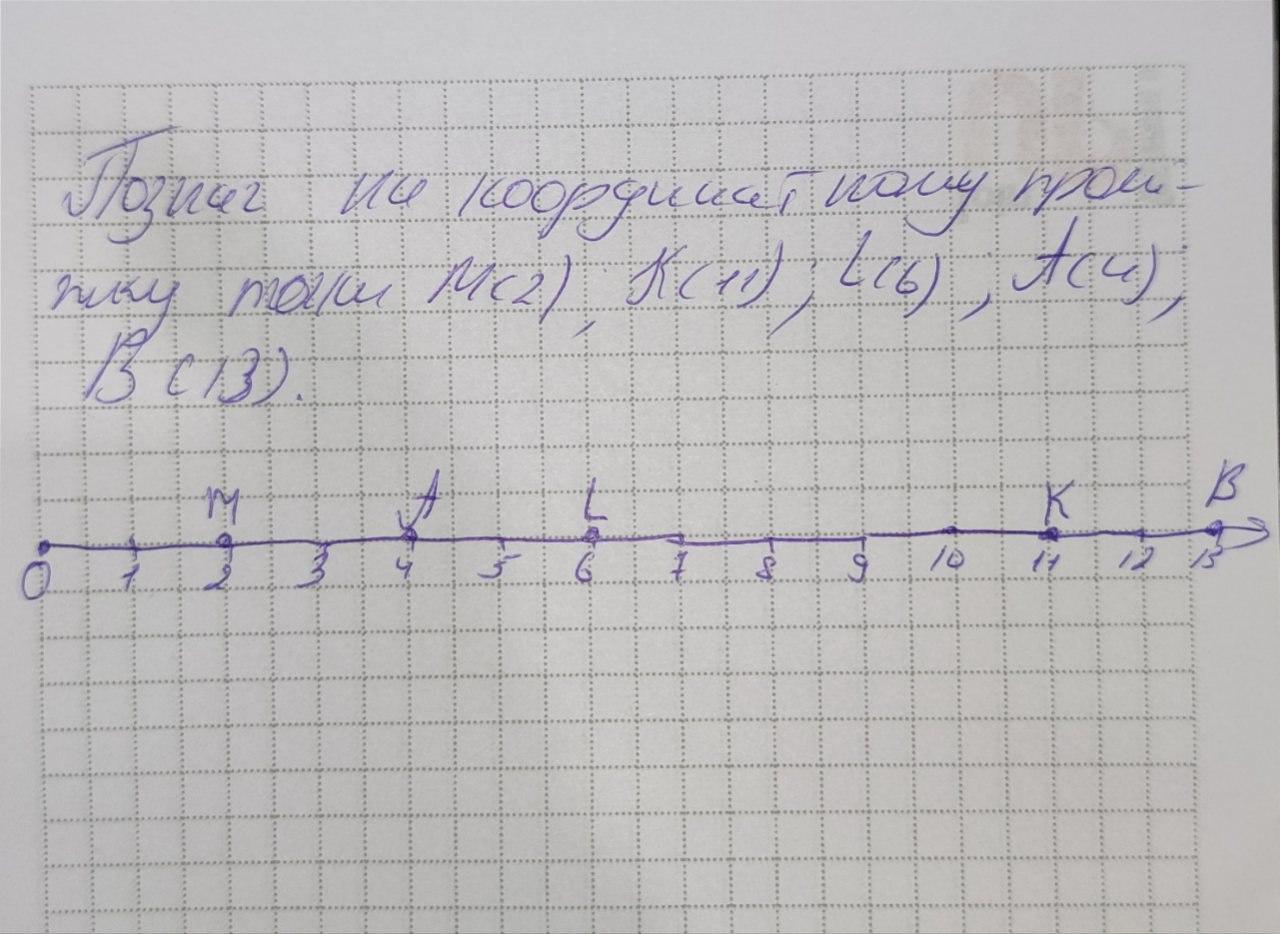 Познач на координатному пром-
іжку точки М(2), К(11); L(6), А(4),
В(13).
М А L К В
0 1 2 3 4 5 6 7 8 9 10 11 12 13